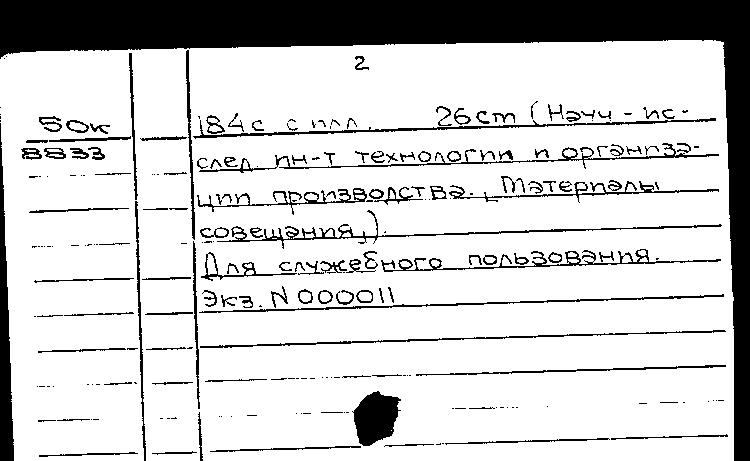 2
50к
8833
184с с илл. 26cm (Научи-ис-
след. ин-т технологии и организа-
ции производства., Материалы
совещания,).
Для служебного пользования.
Экз. N 000011